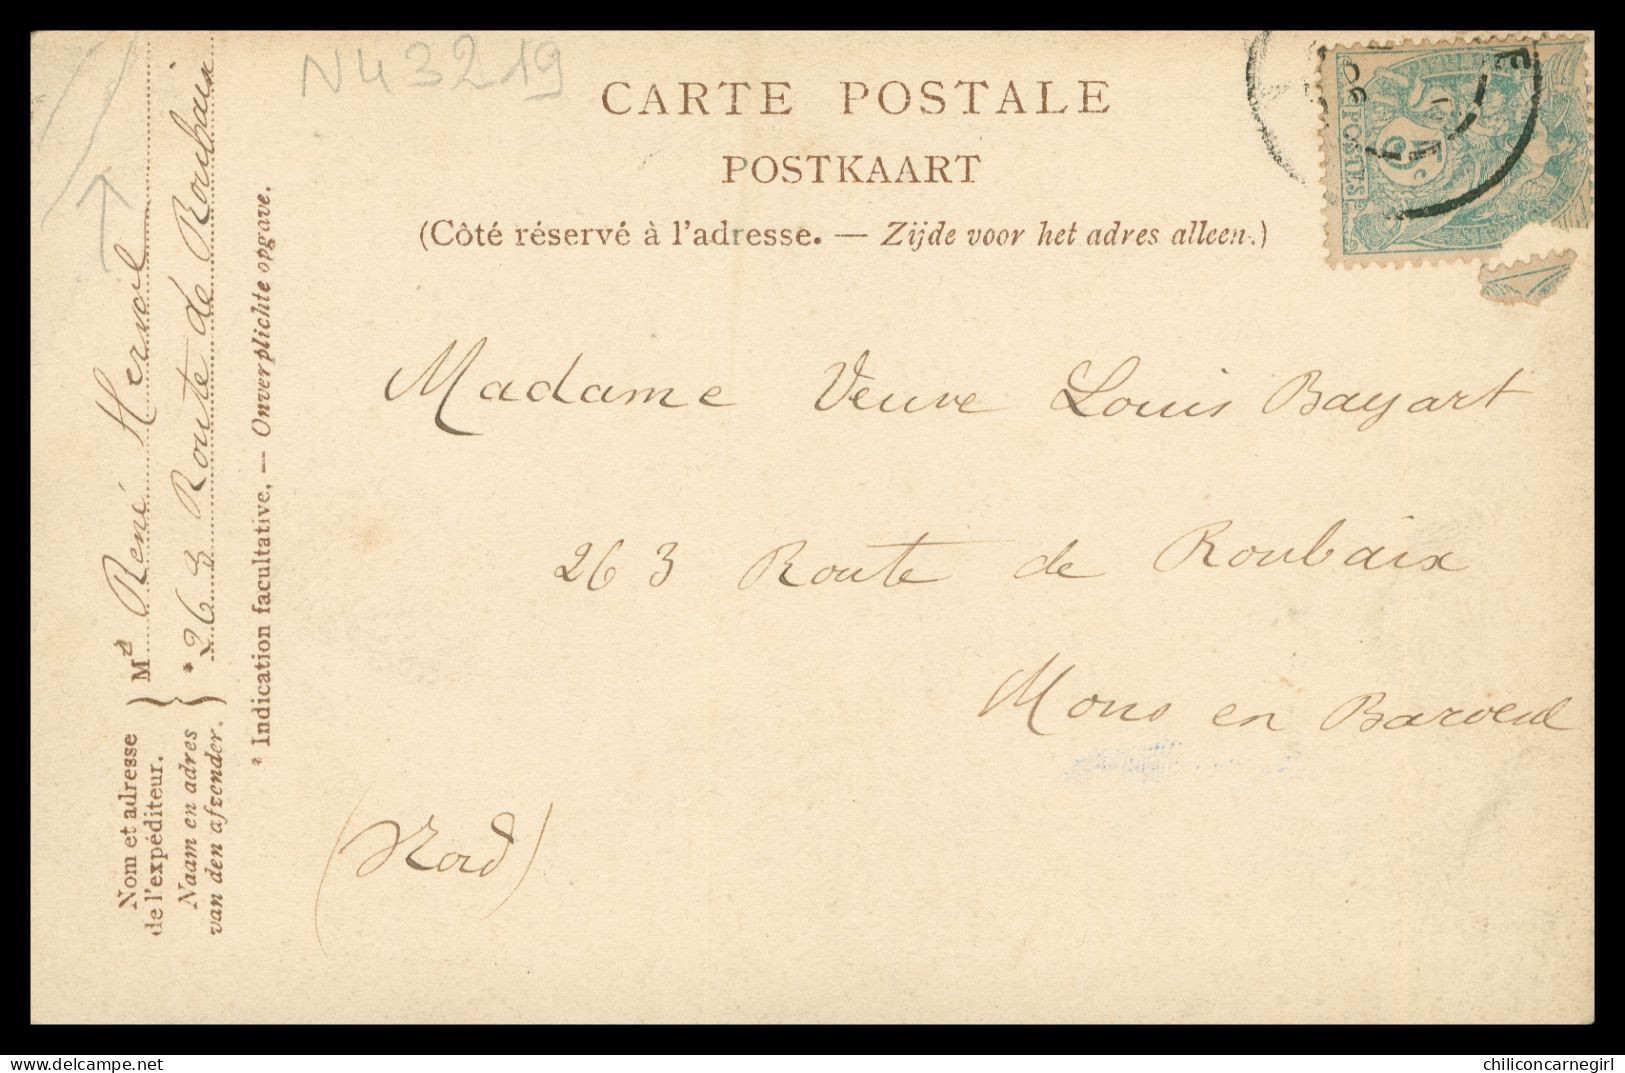 N43219
CARTE POSTALE
POSTKAART
(Côté réservé à l'adresse. — Zijde voor het adres alleen.)
5 c
POSTES
Madame Veuve Louis Bayart
263 Route de Roubaix
Mons en Baroeul
(Nord)
Nom et adresse
de l'expéditeur.
Naam en adres
van den afzender.
Md René Herval
* 263 Route de Roubaix
* Indication facultative. — Onverplichte opgave.
chiliconcarnegirl